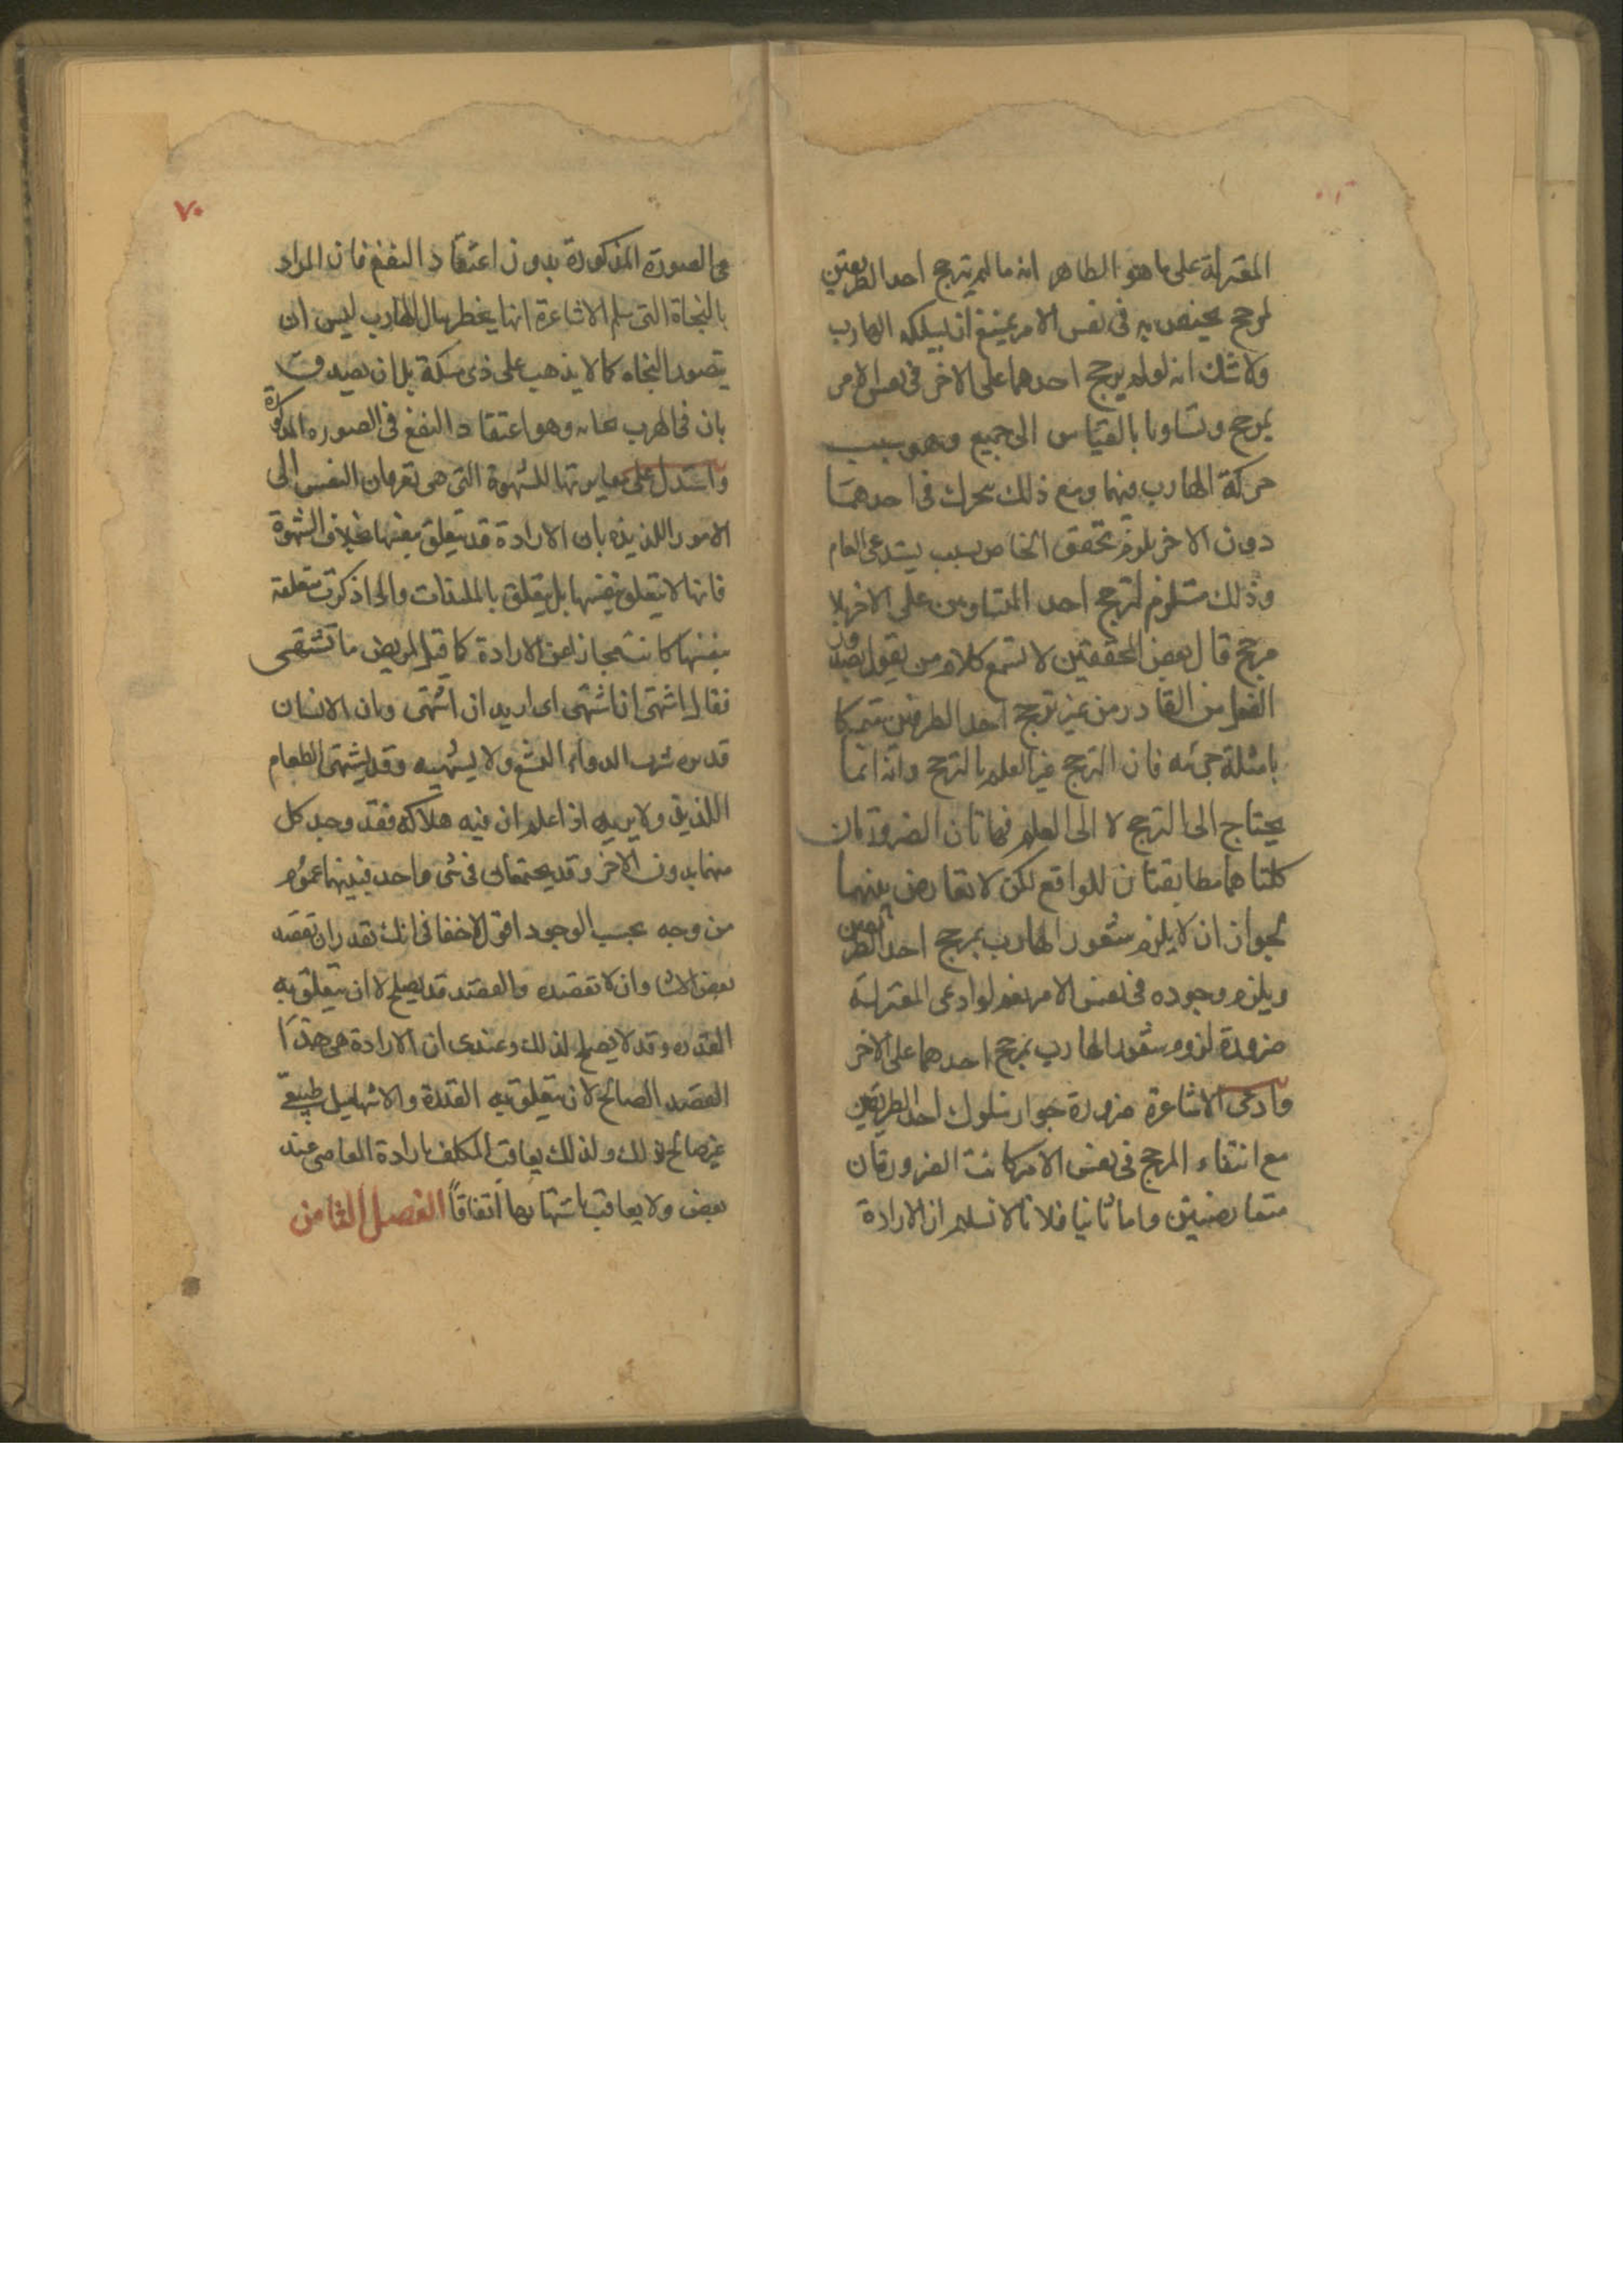 المعتزلة على ما هو الظاهر انه ما لم يترجح احد الطريقين
لمرجح يختص به فى نفس الامر يمتنع ان يسلكه الهارب
ولا شك انه لو لم يرجح احدهما على الاخر فى نفس الامر
بمرجح وتساويا بالقياس الى جميع وهو سبب
حركة الهارب فيهما ومع ذلك تحرك فى احدهما
دون الاخر يلزم تحقق الخاص بسبب يستدعى العام
وذلك مستلزم لترجح احد المتساويين على الاخر بلا
مرجح قال بعض المحققين لا تسمع كلام من يقول بصدور
الفعل من القادر من غير ترجح احد الطرفين متمسكا
بامثلة جزئيه فان الترجح غير العلم بالترجح وانه انما
يحتاج الى الترجح لا الى العلم فهاتان الضرورتان
كلتاهما مطابقتان للواقع لكن لا تعارض بينهما
لجواز ان لا يلزم شعور الهارب بمرجح احد الطريقين
ويلزم وجوده فى نفس الامر نعم لو ادعى المعتزلة
ضرورة لزوم شعور الهارب بمرجح احدهما على الاخر
وادعى الاشاعرة ضرورة جواز سلوك احد الطريقين
مع انتفاء المرجح فى نفس الامر كانت الضرورتان
متعارضتين واما ثانيا فلانا لا نسلم ان الارادة
٧٠
فى الصورة المذكورة بدون اعتقاد النفع فان المراد
بالنجاة التى سلم الاشاعرة انها يخطر ببال الهارب ليس ان
يتصور النجاه كما لا يذهب على ذى مسكة بل ان يصدق
بان فى الهرب نجاته وهو اعتقاد النفع فى الصوره المذكورة
واستدل على مغايرتها للشهوة التى هى توقان النفس الى
الامور اللذيذه بان الارادة قد تتعلق بنفسها بخلاف الشهوة
فانها لا تتعلق بنفسها بل تتعلق باللذات واذا ذكرت متعلقة
بنفسها كانت مجازا عن الارادة كما قيل لمريض ما تشتهى
فقال اشتهى ان اشتهى اى اريد ان اشتهى وبان الانسان
قد يريد شرب الدواء البشع ولا يشتهيه وقد يشتهى الطعام
اللذيذ ولا يريده اذا علم ان فيه هلاكه فقد وجد كل
منهما بدون الاخر وقد يجتمعان فى شى واحد فبينهما عموم
من وجه بحسب الوجود اقول لا خفا فى انك تقدر ان تقصد
بعض الاشيا وان لا تقصده والقصد قد يصلح لان يتعلق به
القدره وقد لا يصلح لذلك وعندى ان الارادة هى هذا
القصد الصالح لان يتعلق به القدرة والاشتها ميل طبيعى
غير صالح لذلك ولذلك يعاقب المكلف بارادة المعاصى عند
بعض ولا يعاقب باشتهائها اتفاقاً الفصل الثامن